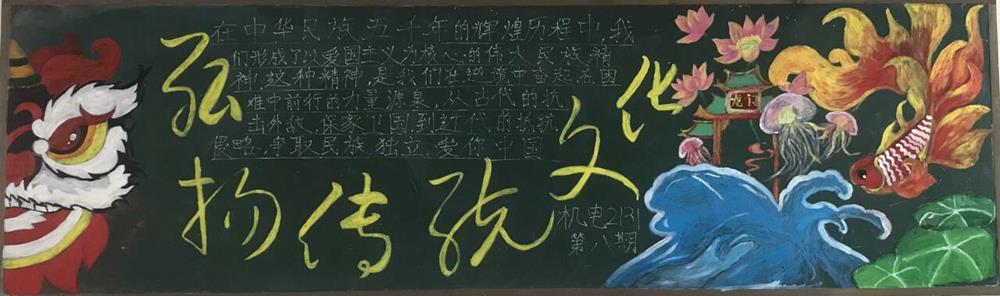 在中华民族五千年的辉煌历程中,我
们形成了以爱国主义为核心的伟大民族精
神,这种精神,是我们在逆境中奋起,在困
难中前行的力量源泉,从古代的抗
击外敌、保家卫国到近代的抵抗
侵略、争取民族独立,爱你中国
弘扬传统文化
龙门
机电2131
第八期